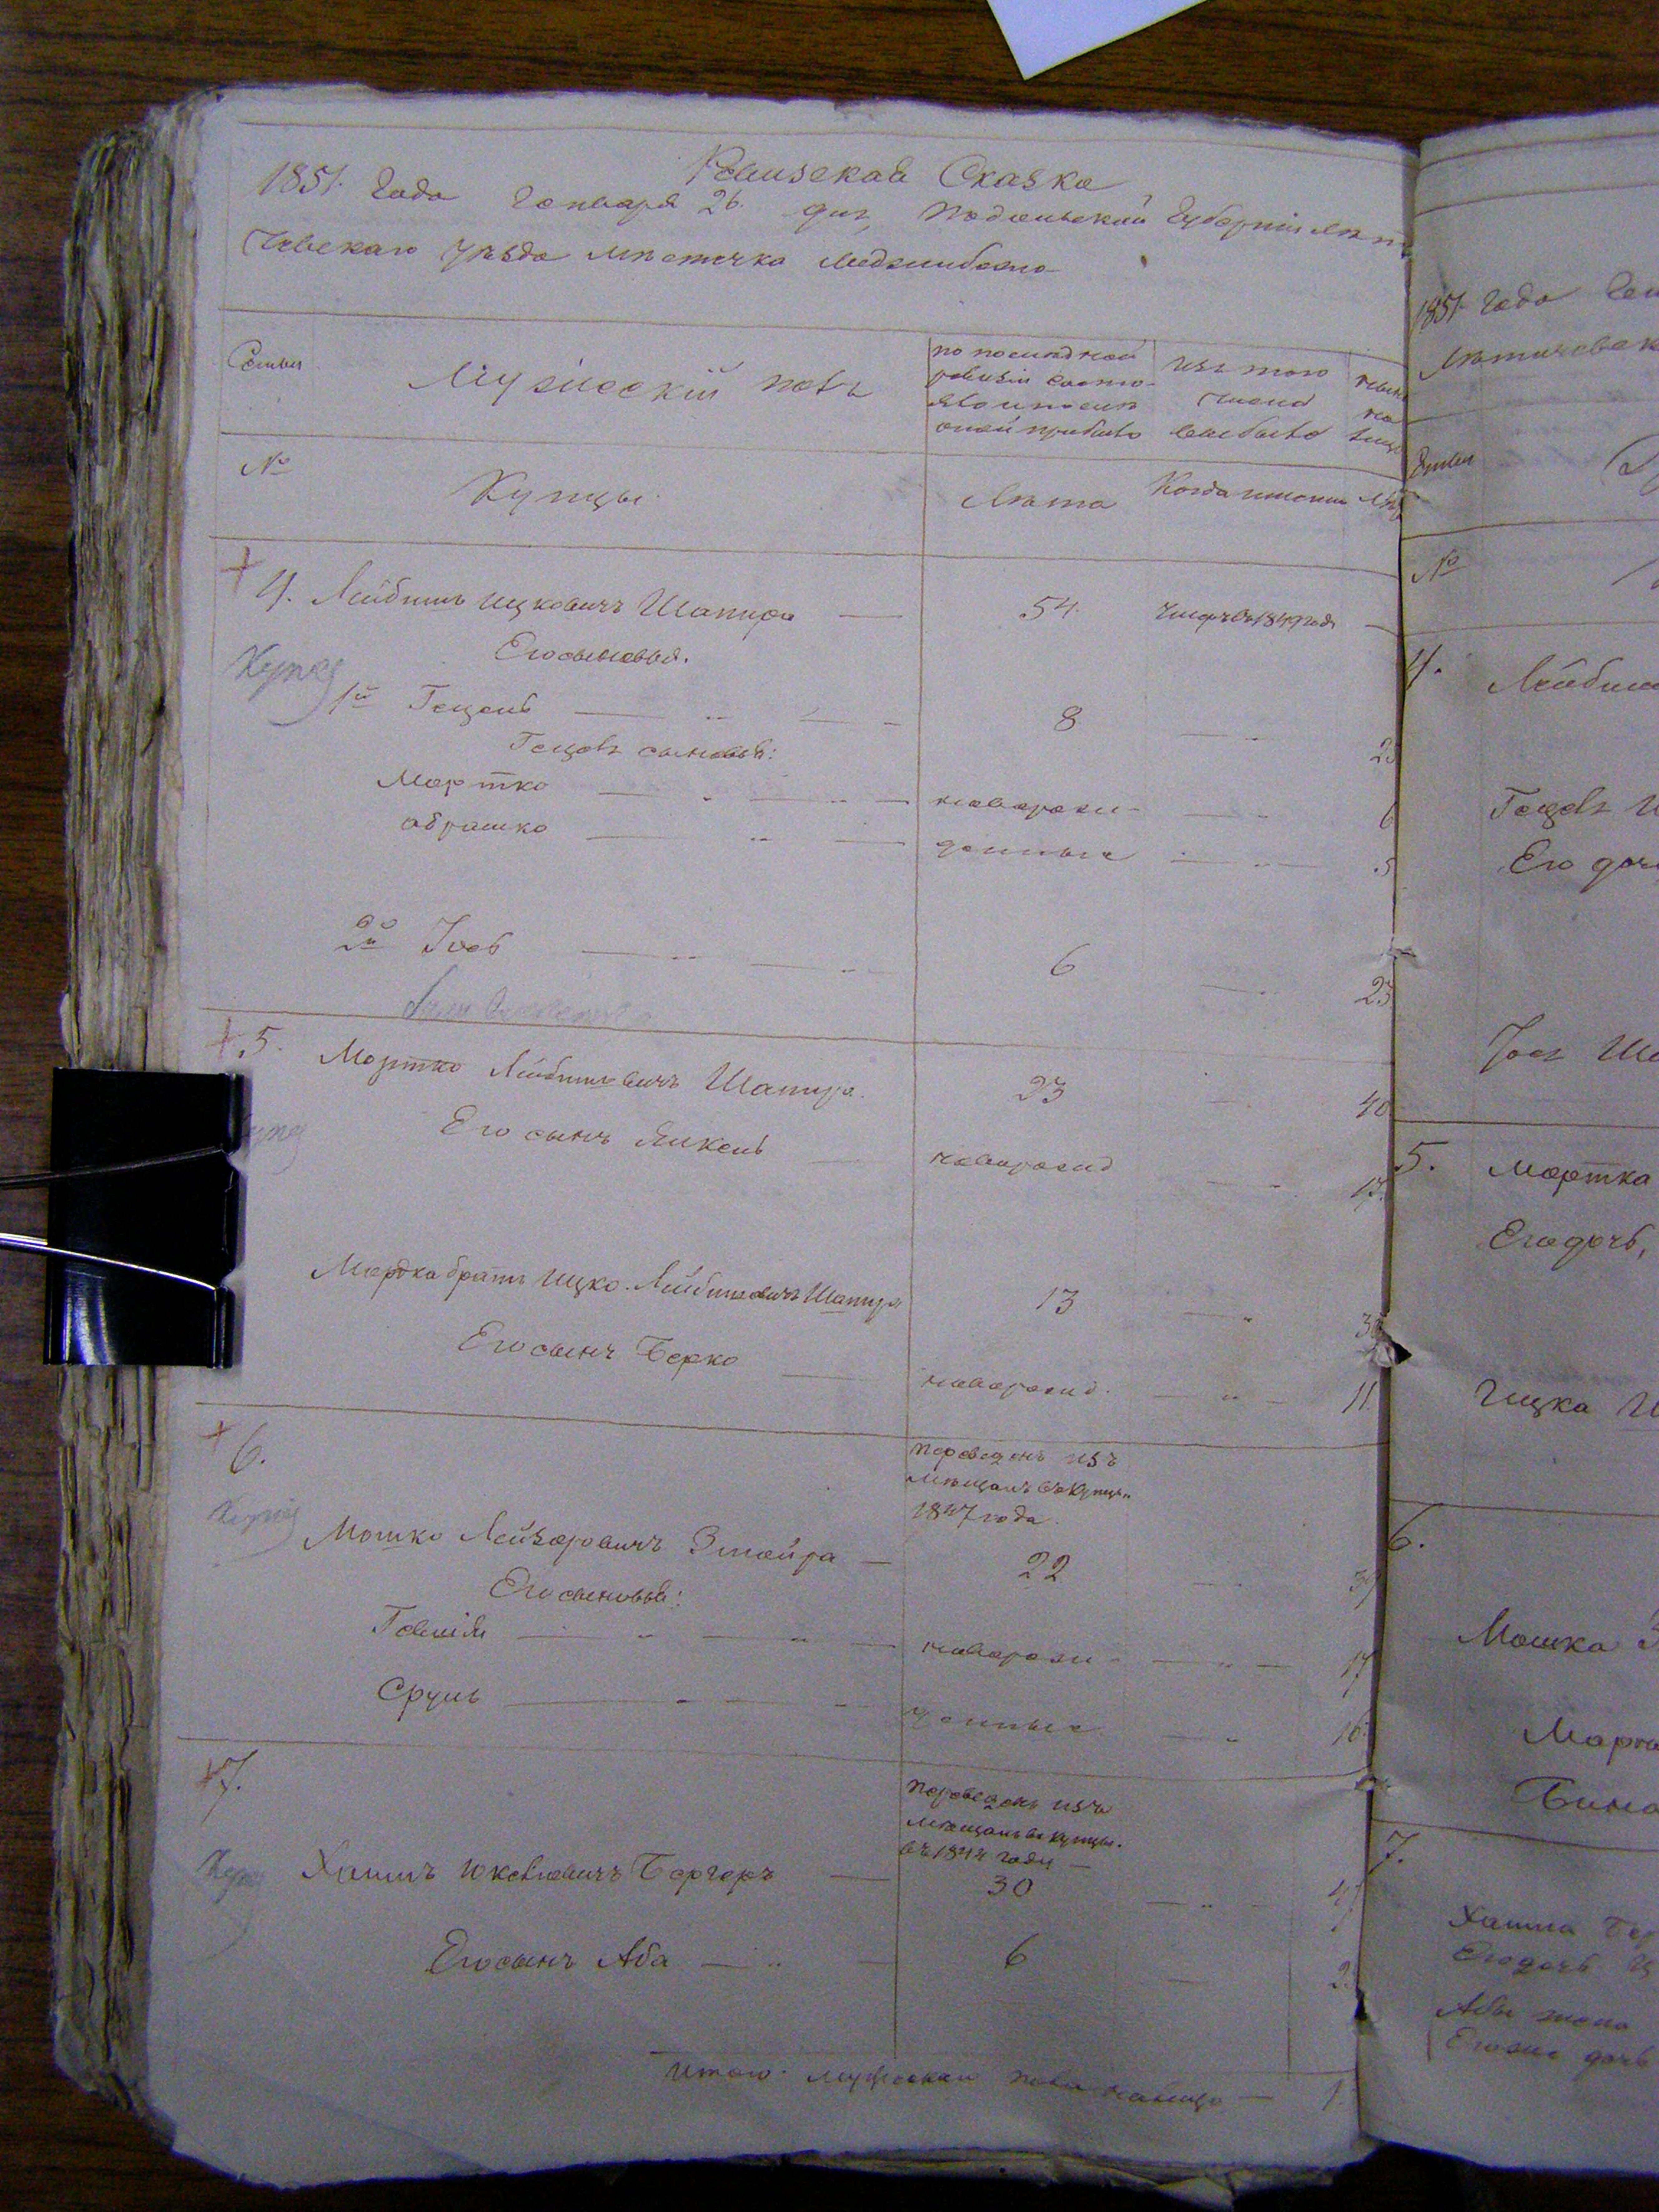 Ревизская Сказка
1851 Года Генваря 26 дня, Подольской Губерніи Лѣти
чевскаго уѣзда мѣстечка Меджибожа
Семьи
Мужескій полъ
по послѣдней
ревизіи состо-
яло и послѣ
оной прибыло
изъ того
числа
выбыло
нынѣ
на
лицо
№
Купцы
Лѣта
Когда именно
Лѣта
4. Лейбишъ Ицковичъ Шапира — 54. умеръ въ 1849 годѣ —
Купец
Его сыновья.
1й Гецель — 8 — 25
Гецеля сыновья:
Мортко — новорож- — 6
Абрашко — денные — 5
2й Іось — 6 — 23
5. Мортко Лейбишовичъ Шапира. 23 — 40
Купец
Его сынъ Янкель новорожд — 17.
Мордка братъ Ицко Лейбишовичъ Шапира 13 — 30
Его сынъ Берко — новорожд. — 11.
6.
переведенъ изъ
мѣщанъ въ купцы
1847 года.
Купец
Мошко Лейзоровичъ Змойра — 22 — 39
Его сыновья:
новорож- — 17
Сруль — денные — 16
7.
переведенъ изъ
мѣщанъ въ купцы.
въ 1844 году —
Купец
Хаимъ Юковлевичъ Бергеръ — 30 — 47
Его сынъ Аба — 6 — 2
Итого мужеска пола налицо —
1851 Года Ген
Лѣтичевск
Семьи
№
4. Лейбиш
Его доч
5. Мортка
Его дочь,
Ицка Ш
6.
Мошка З
7.
Хаима Бер
Его дочь
Абы жена
Его же дочь